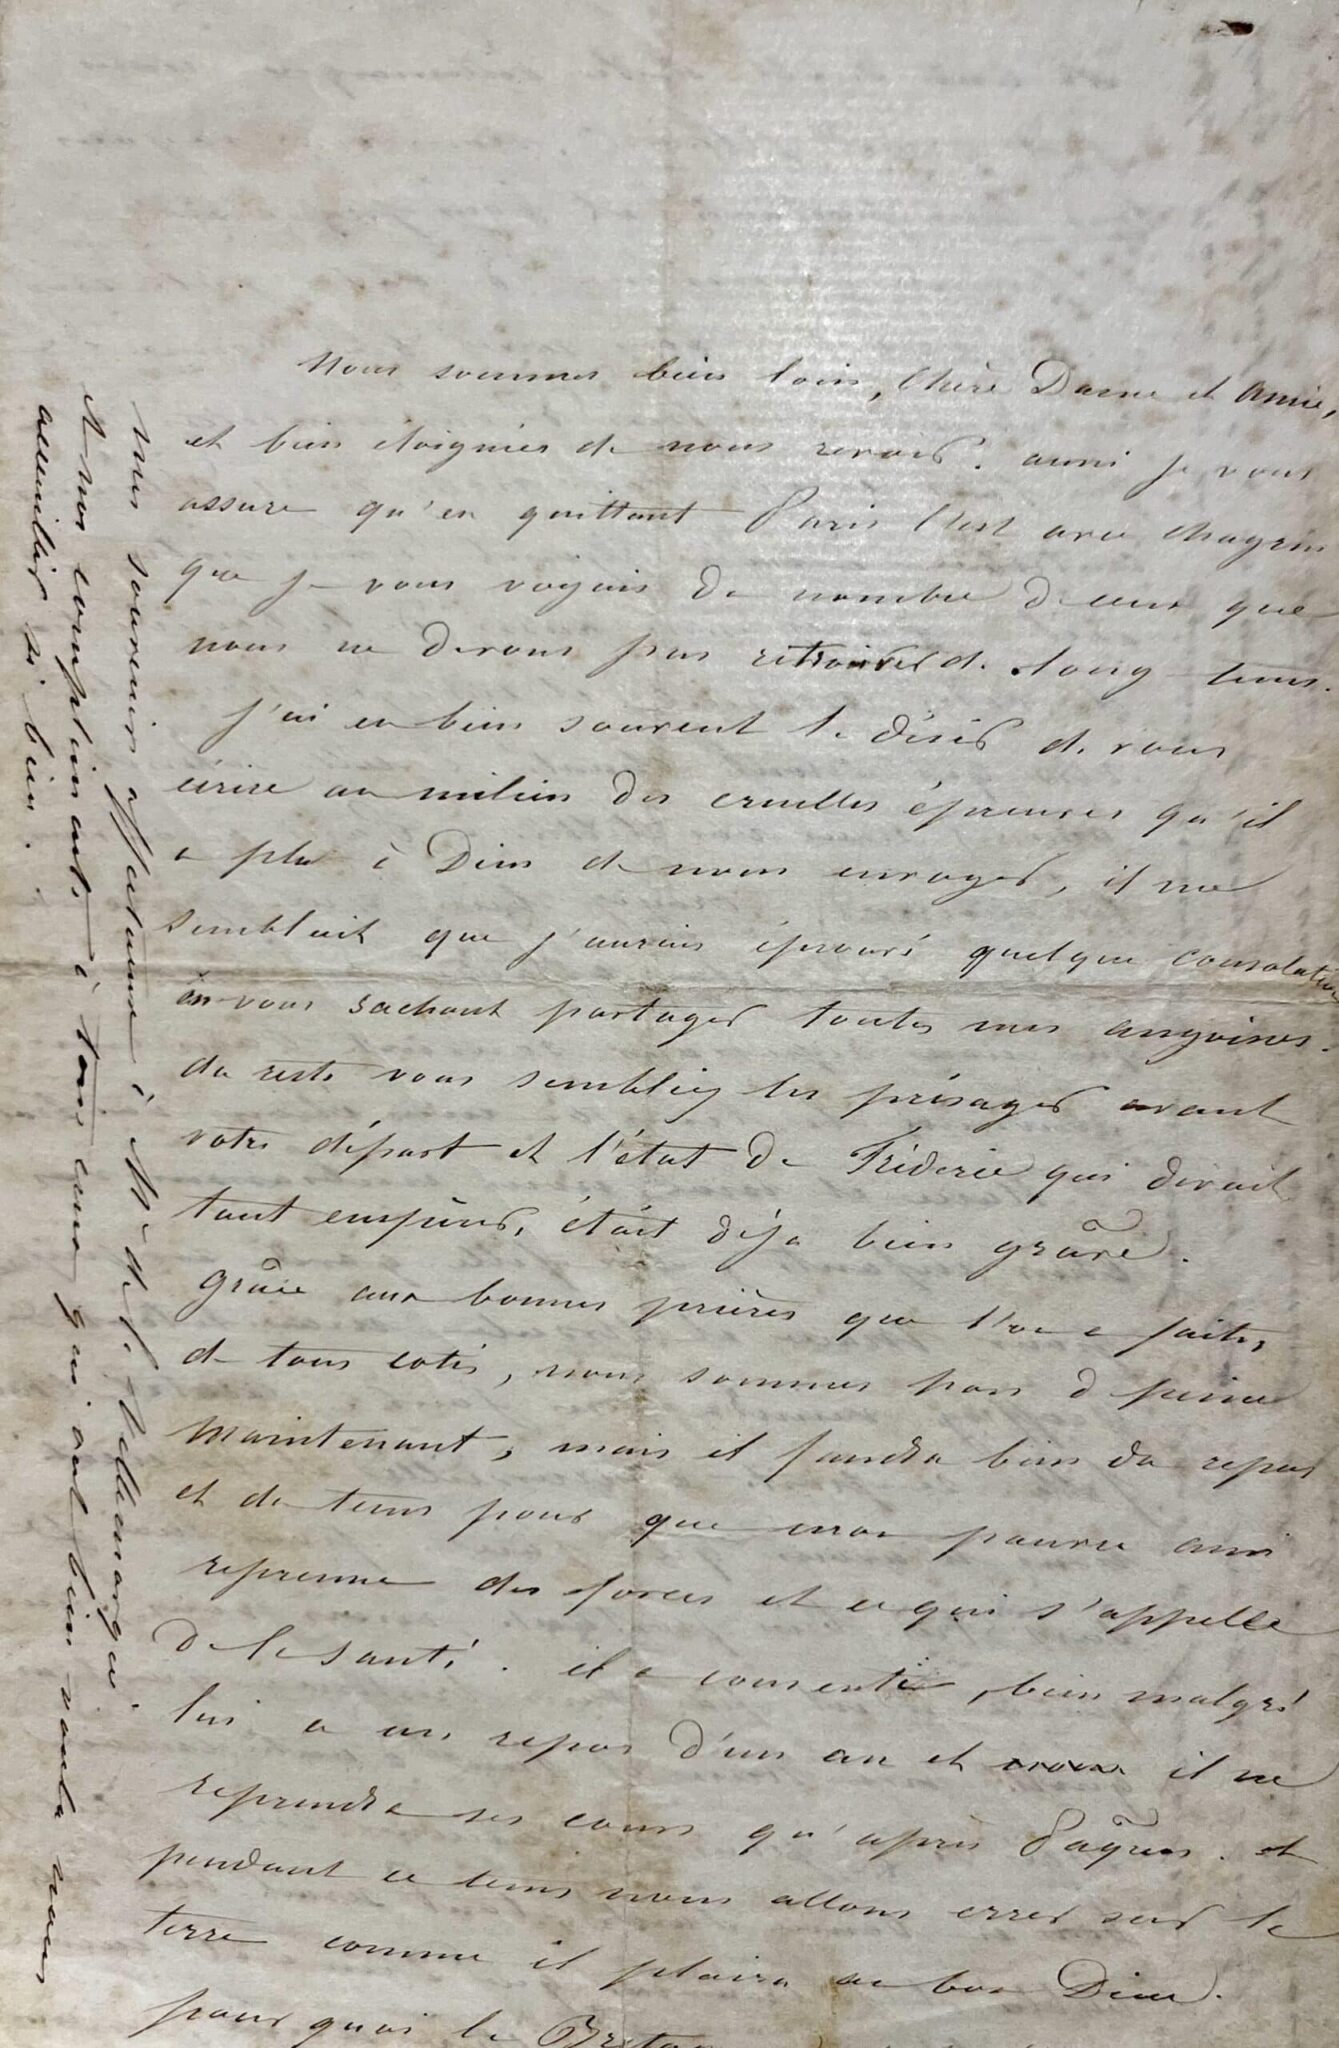 Nous sommes bien loin, Chère Dame et amie,
et bien éloignées de nous revoir. aussi je vous
assure qu'en quittant Paris c'est avec chagrin
que je vous voyais du nombre de ceux que
nous ne devons pas retrouver de long tems.
J'ai eu bien souvent le désir de vous
écrire au milieu des cruelles épreuves qu'il
a plu à Dieu de nous envoyer, il me
semblait que j'aurais éprouvé quelque consolation
en vous sachant partager toutes mes angoisses.
du reste vous sembliez les présager avant
votre départ et l'état de Fréderic qui devait
tant empirer, était déja bien grave.
Grâce aux bonnes prières que l'on a faites
de tous cotés, nous sommes hors de peine
maintenant, mais il faudra bien du repos
et du tems pour que mon pauvre ami
reprenne des forces et ce qui s'appelle
de la santé. il a consenti, bien malgré
lui a un repos d'un an et il ne
reprendra ses cours qu'après Pâques. et
pendant ce tems nous allons errer sur la
terre comme il plaira au bon Dieu.
pourquoi la
mes souvenirs affectueux à Mr de la Villemarqué.
et nos compliments à tous ceux qui ont bien voulu nous
accueillir si bien.